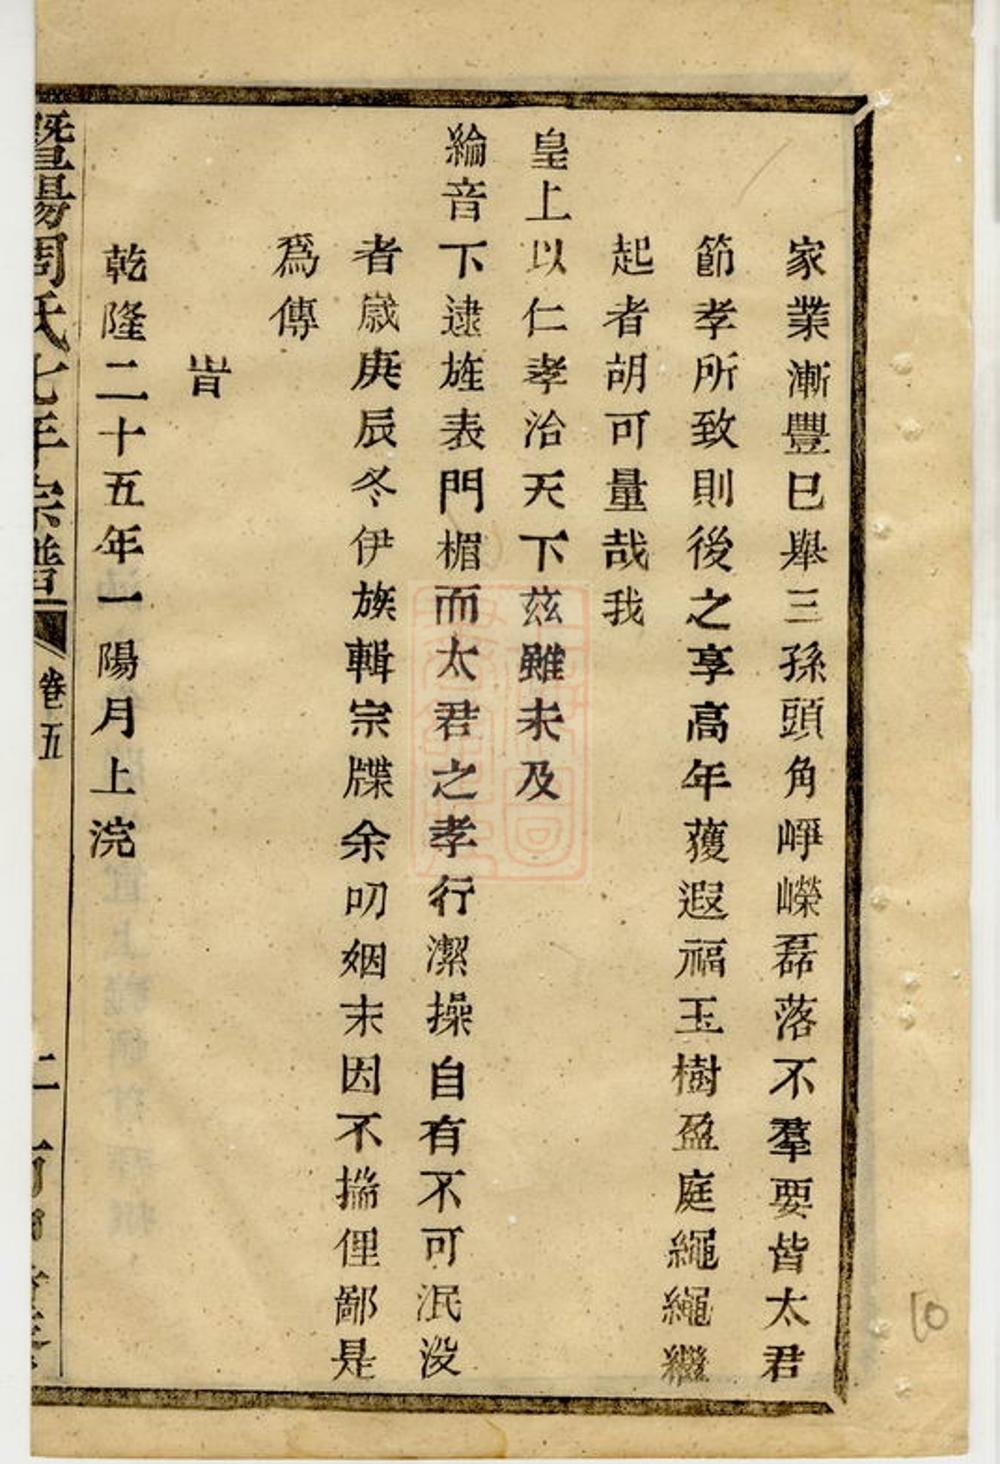 家業漸豐已舉三孫頭角崢嶸磊落不羣要皆太君
節孝所致則後之享高年獲遐福玉樹盈庭繩繩繼
起者胡可量哉我
皇上以仁孝治天下茲雖未及
綸音下逮旌表門楣而太君之孝行潔操自有不可泯沒
者歲庚辰冬伊族輯宗牒余叨姻末因不揣俚鄙是
爲傳
旹
乾隆二十五年一陽月上浣
暨陽周氏七年宗譜 卷五
10